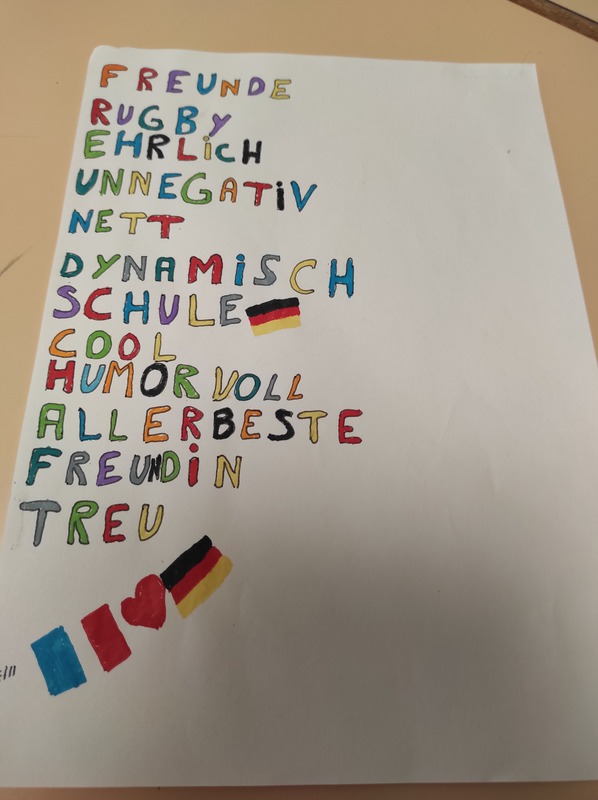 FREUNDE
RUGBY
EHRLiCH
UNNEGATiV
NETT
DYNAMiSCH
SCHULE
COOL
HUMORVOLL
ALLERBESTE
FREUNDiN
TREU